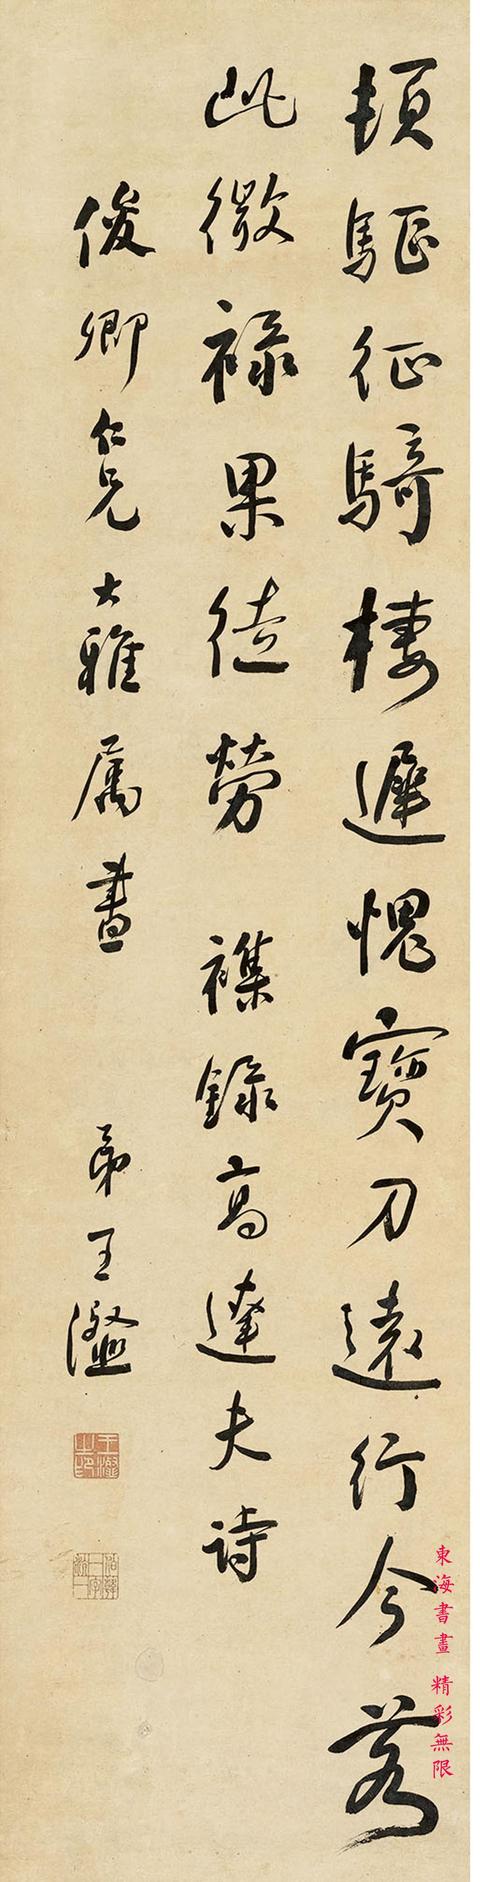 頓駈征騎棲遲愧寶刀遠行今若
此微祿果徒勞 襍錄高達夫詩
俊卿仁兄大雅属書 弟王瀣
王瀣之印
東海書畫 精彩無限